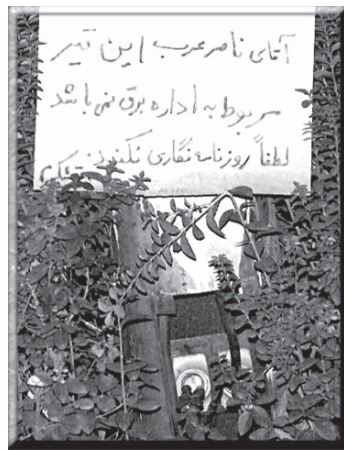 آقای ناصر عرب این تیر
مربوط به اداره برق نمی باشد
لطفاً روزنامه نگاری نکنید